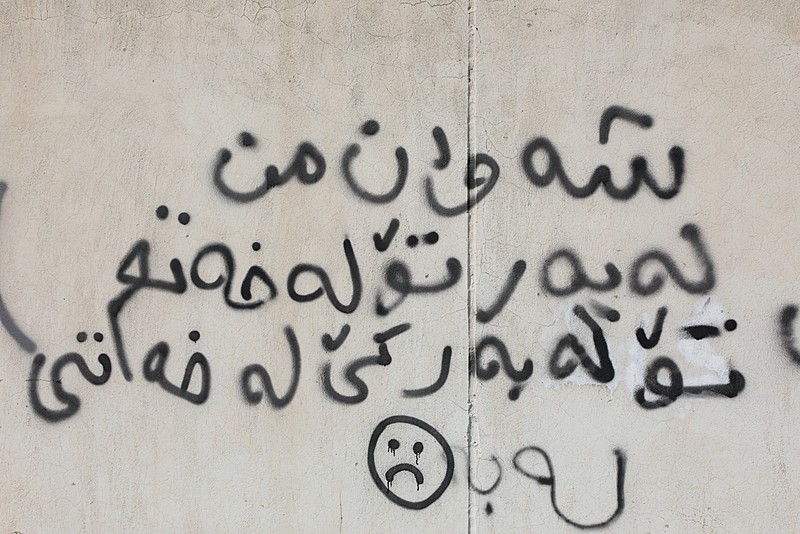 شەوان من
لەبەر تۆ لە خەتم
تۆ لەبەر کێ لە خەتی
لەبا